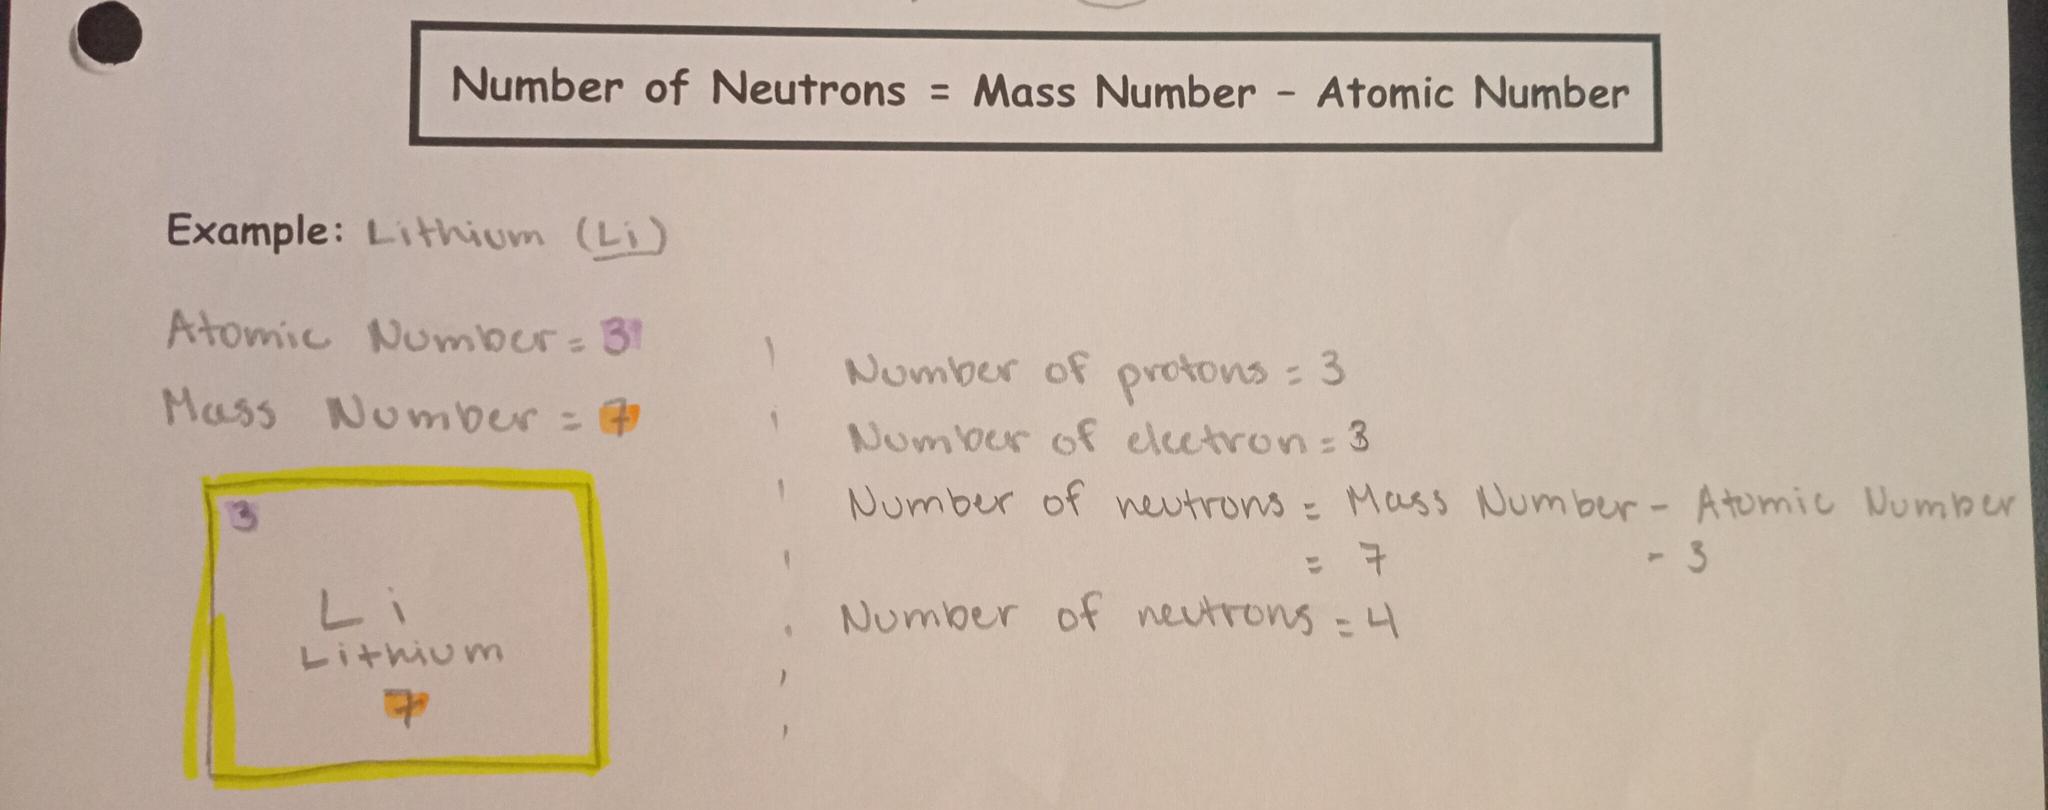 Number of Neutrons = Mass Number - Atomic Number
Example: Lithium (Li)
Atomic Number = 3
Mass Number = 7
3
Li
Lithium
7
Number of protons = 3
Number of electron = 3
Number of neutrons = Mass Number - Atomic Number
= 7 - 3
Number of neutrons = 4